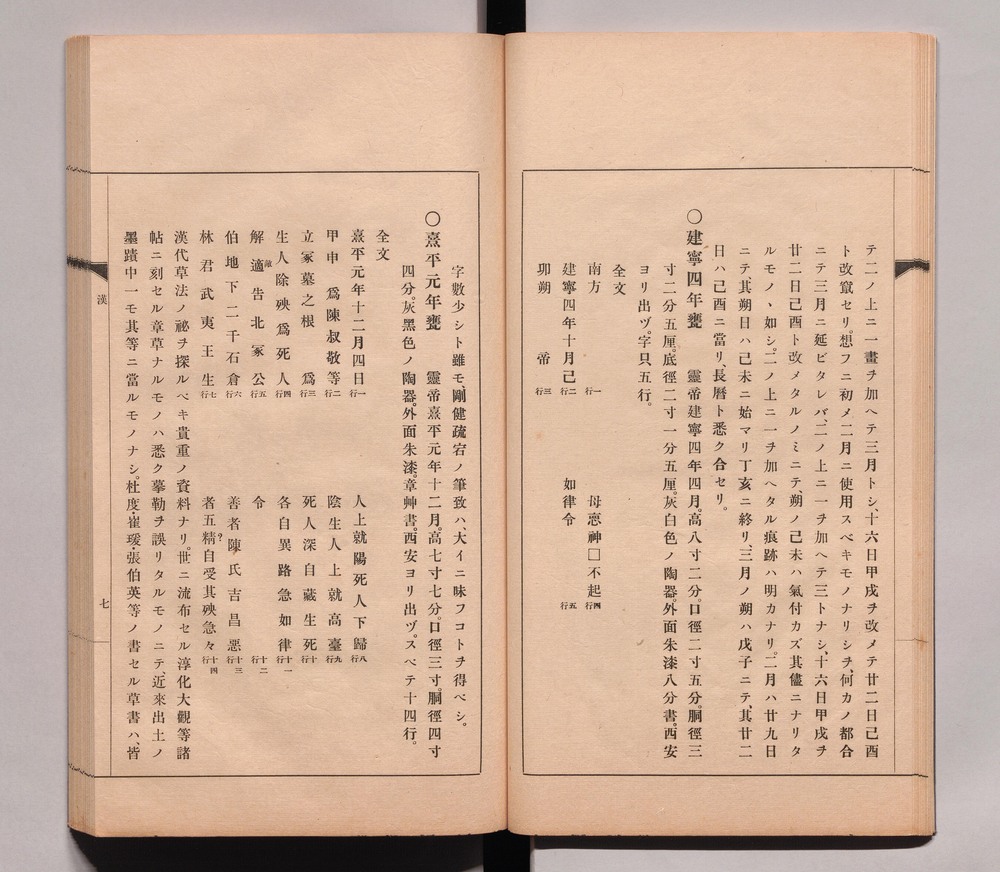 テ二ノ上ニ一畫ヲ加ヘテ三月トシ、十六日甲戌ヲ改メテ廿二日己酉
ト改竄セリ。想フニ初メ二月ニ使用スベキモノナリシヲ、何カノ都合
ニテ三月ニ延ビタレバ、二ノ上ニ一ヲ加ヘテ三トナシ、十六日甲戌ヲ
廿二日己酉ト改メタルノミニテ、朔ノ己未ハ氣付カズ其儘ニナリタ
ルモノヽ如シ。二ノ上ニ一ヲ加ヘタル痕跡ハ明カナリ。二月ハ廿九日
ニテ、其朔日ハ己未ニ始マリ丁亥ニ終リ、三月ノ朔ハ戊子ニテ、其廿二
日ハ己酉ニ當リ、長曆ト悉ク合セリ。
〇建寧四年甕 靈帝建寧四年四月。高八寸二分。口徑二寸五分。胴徑三
寸二分五厘。底徑二寸一分五厘。灰白色ノ陶器。外面朱漆八分書。西安
ヨリ出ヅ。字只五行。
全文
南方 一行 母悳神□不起 四行
建寧四年十月己 二行 如律令 五行
卯朔 帝 三行
字數少シト雖モ、剛健疏宕ノ筆致ハ、大イニ味フコトヲ得ベシ。
〇熹平元年甕 靈帝熹平元年十二月。高七寸七分。口徑三寸。胴徑四寸
四分。灰黑色ノ陶器。外面朱漆。章艸書。西安ヨリ出ヅ。スベテ十四行。
全文
熹平元年十二月四日 一行 人上就陽死人下歸 八行
甲申 爲陳叔敬等 二行 陰生人上就高臺 九行
立冢墓之根 爲 三行 死人深自藏生死 十行
生人除殃爲死人 四行 各自異路急如律 十一行
解適告北冢公 五行 令 十二行
伯地下二千石倉 六行 善者陳氏吉昌惡 十三行
林君武夷王生 七行 者五精?自受其殃急々 十四行
漢代草法ノ祕ヲ探ルベキ貴重ノ資料ナリ。世ニ流布セル淳化大觀等諸
帖ニ刻セル章草ナルモノハ悉ク摹勒ヲ誤リタルモノニテ、近來出土ノ
墨蹟中一モ其等ニ當ルモノナシ。杜度・崔瑗・張伯英等ノ書セル草書ハ、皆
漢
七